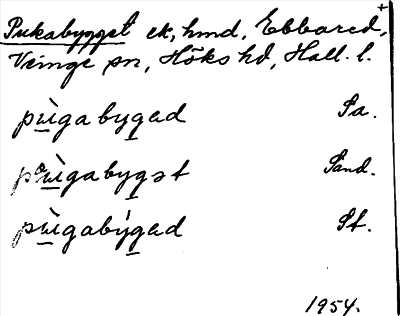 Pukabygget ek, hmd, Ebbared,+
Veinge sn, Höks hd, Hall. l.
pùgabygad Sa.
pùgabygət Sand.
pùgabýgad St.
1954.